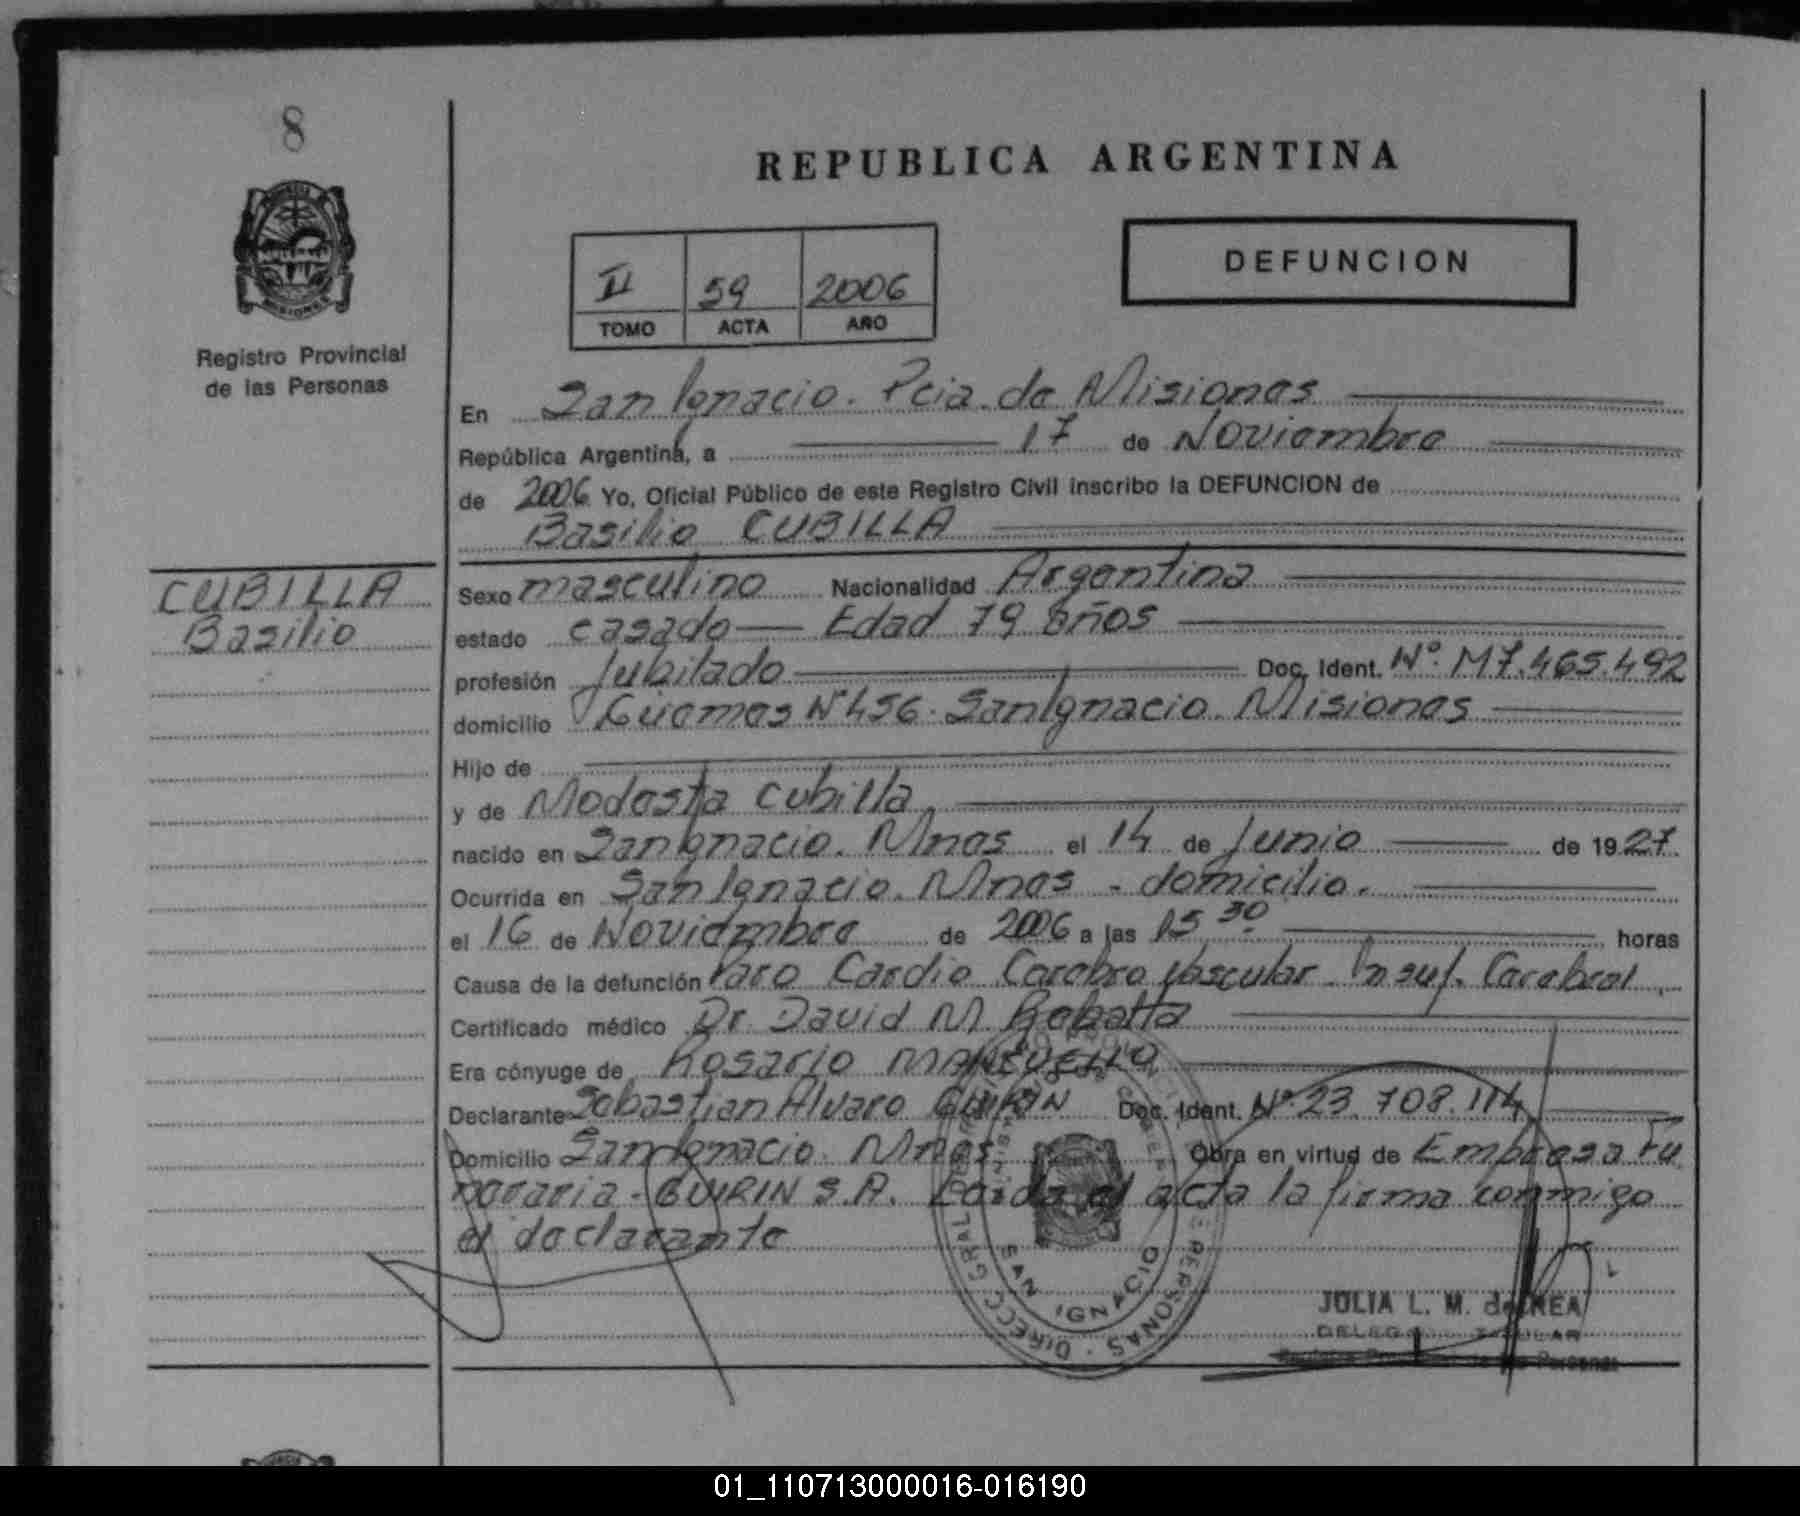 8
REPUBLICA ARGENTINA
DEFUNCION
II 59 2006
TOMO ACTA AÑO
Registro Provincial
de las Personas
En San Ignacio. Pcia. de Misiones
República Argentina, a 17 de Noviembre
de 2006 Yo, Oficial Público de este Registro Civil inscribo la DEFUNCION de
Basilio CUBILLA
CUBILLA
Basilio
Sexo masculino Nacionalidad Argentina
estado casado Edad 79 años
profesión Jubilado Doc. Ident. Nº. M7.465.492
domicilio Güemes Nº 456. San Ignacio. Misiones
Hijo de
y de Modesta Cubilla
nacido en San Ignacio. Mnes el 14 de Junio de 1927.
Ocurrida en San Ignacio. Mnes - domicilio.
el 16 de Noviembre de 2006 a las 15 30 horas
Causa de la defunción Paro Cardio Cerebro vascular. Insuf. Cerebral
Certificado médico Dr. David M.
Era cónyuge de Rosario
Declarante Sebastian Alvaro GUIRIN Doc. Ident. Nº 23.708.114
Domicilio San Ignacio. Mnes Obra en virtud de Empresa Fu
neraria - GUIRIN S.A. Leida el acta la firma conmigo
el declarante
SAN IGNACIO
DIRECC GRAL PERSONAS
JULIA L. M. de
01_110713000016-016190